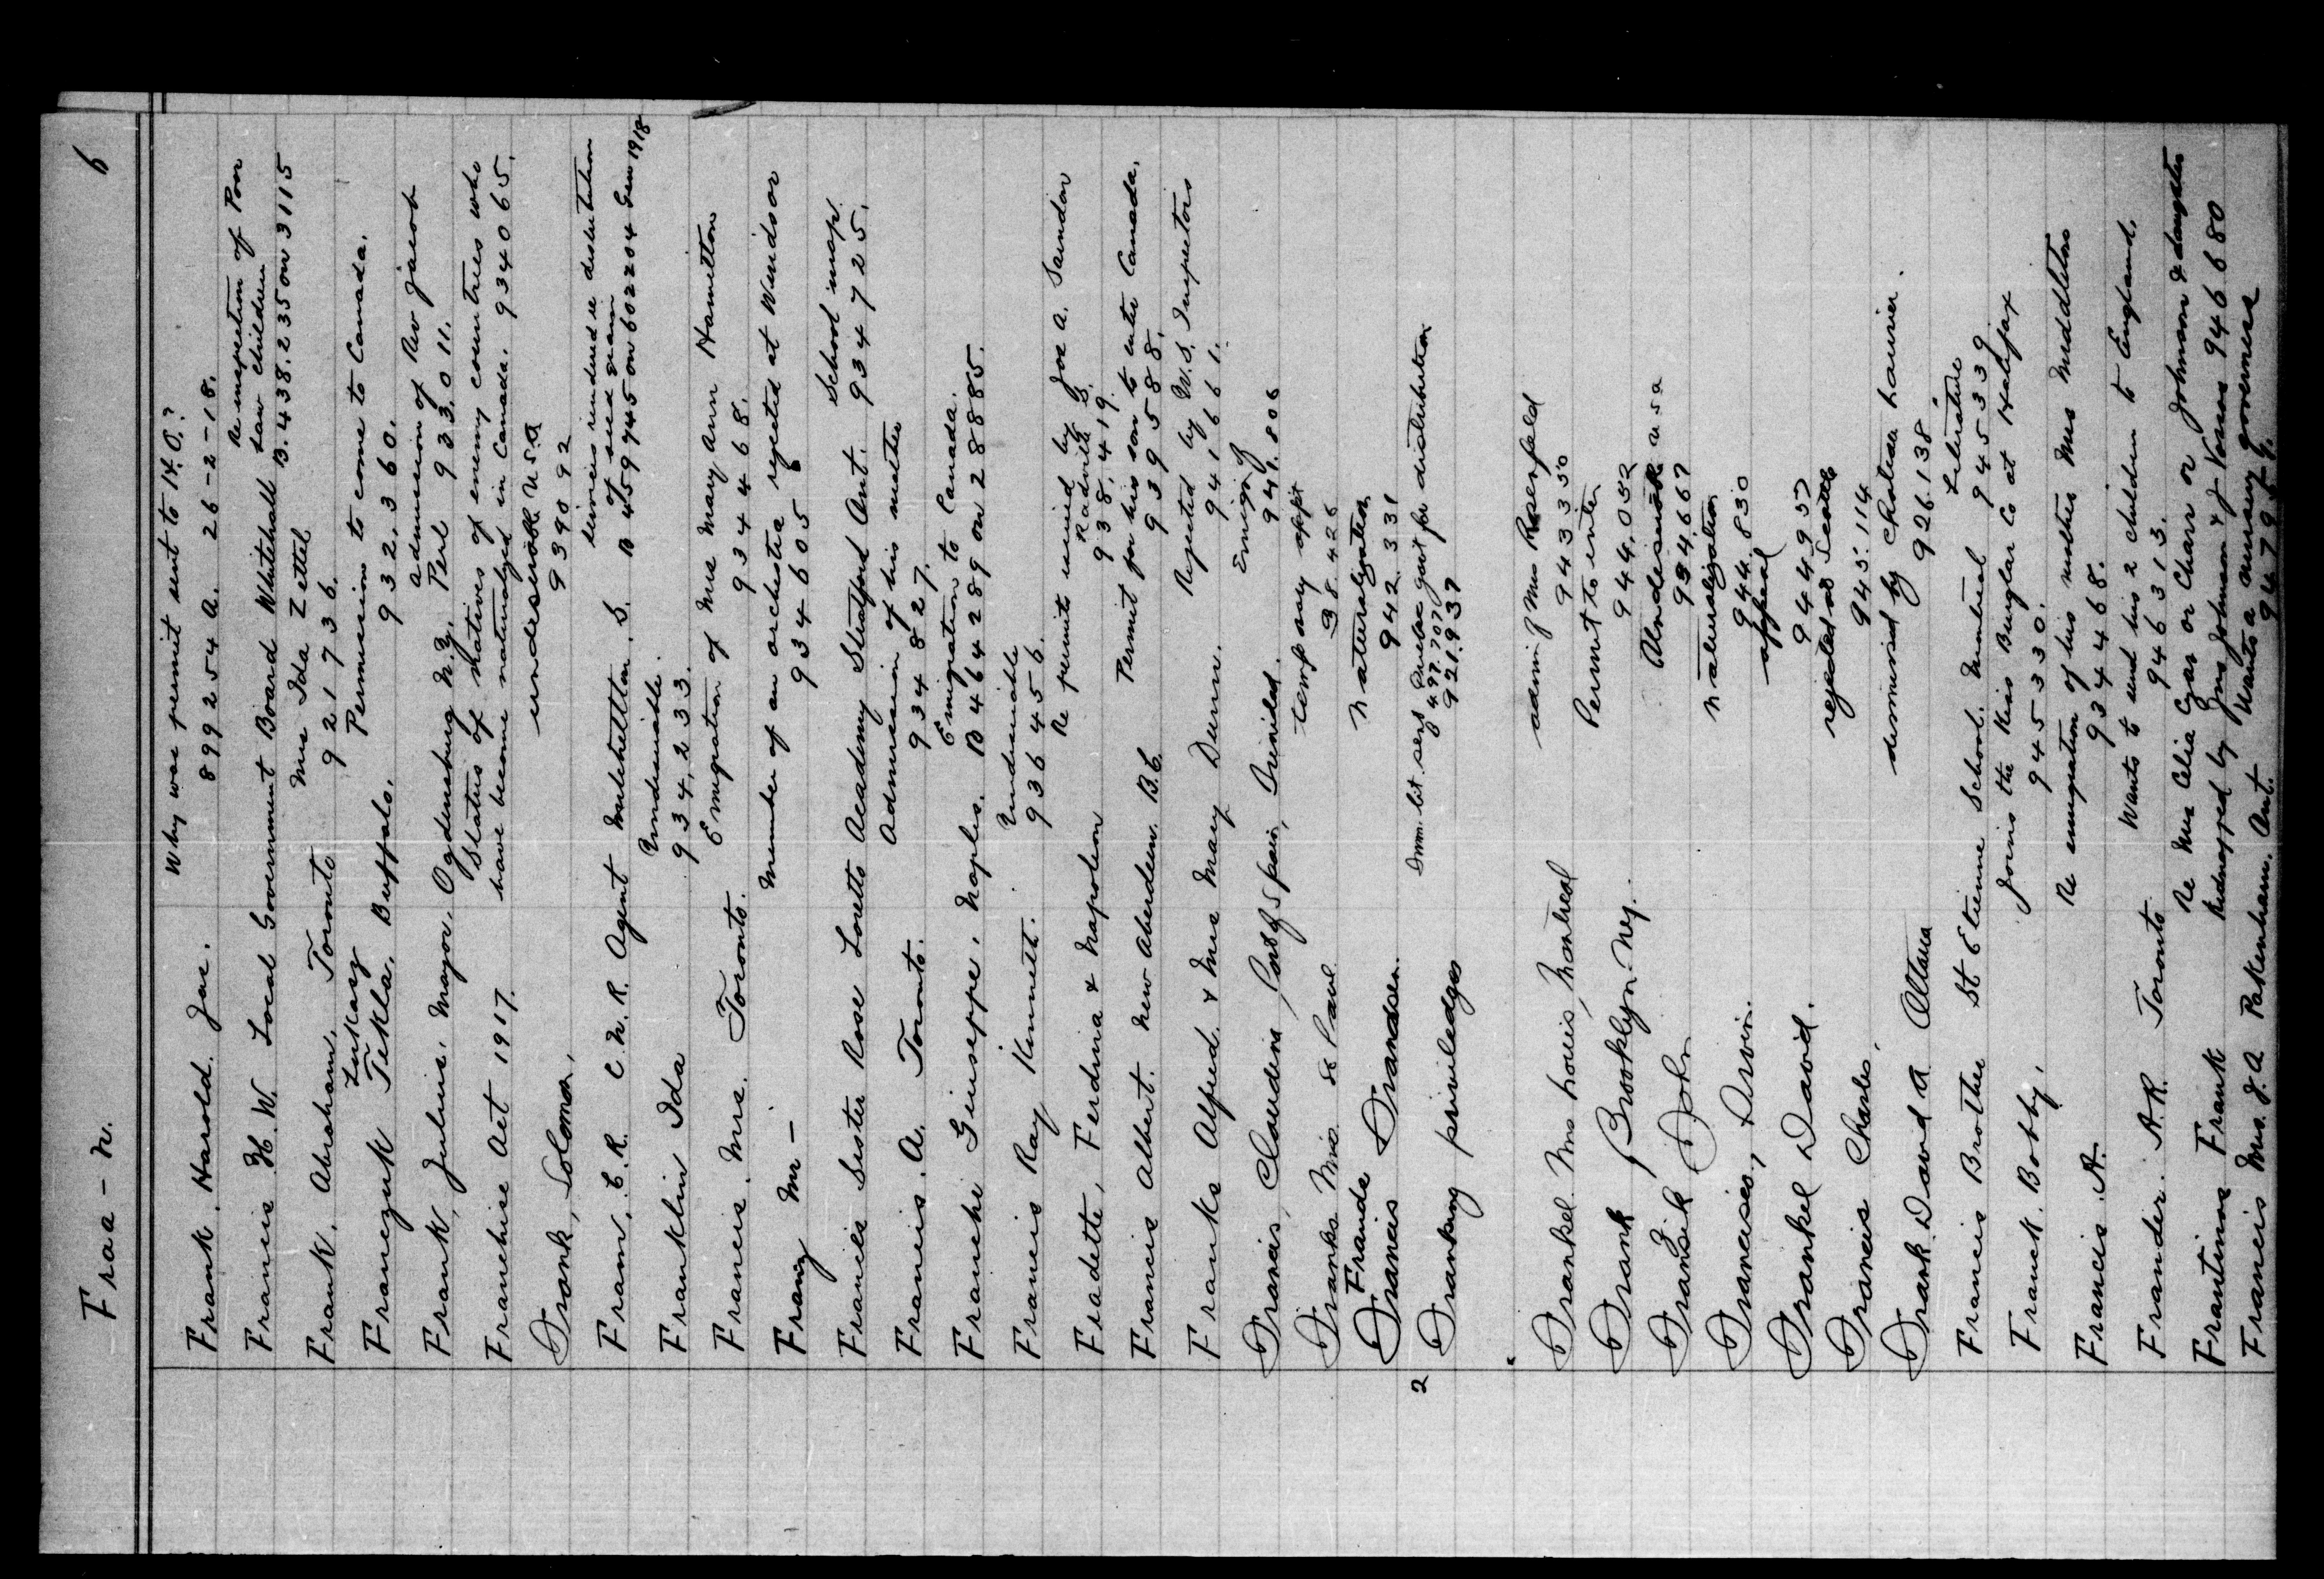 Fraa - n. 6
Frank. Harold. Jas. Why was permit sent to H.O.?
899254 A. 26-2-18.
Francis H. W. Local Government Board Whitehall Re inspection of Poor
Law Children
B.438.235 on 3115
Frank. Abraham, Toronto Mrs Ida Zettel
921736.
Lukasz
Franczuk Tekla, Buffalo. Permission to come to Canada.
932.360.
Frank, Julius, Mayor, Ogdensburg N.Y. admission of Rev Jacob
Perl 933.011.
Franchise Act 1917. Status of natives of enemy countries who
have become naturalized in Canada. 934065.
Frank, Solomon, undesirable U.S.A
939092
Fram. C.R. C.N.R. Agent S. Services rendered re distribution
of seed grain
B 4597445 on 602204 Gen 1918
Franklin Ida Undesirable.
934,233.
Francis. Mrs. Toronto. Emigration of Mrs Mary Ann Hamilton
934468.
Franz Mr - Member of an orchestra rejected at Windsor
934605
Francis Sister Rose Loretto Academy Stratford Ont. School map
934725.
Francis. A. Toronto. Admission of his mother
934827.
Franchi Giuseppe. Naples. Emigration to Canada.
B 464289 on 28885.
Francis Ray Kenneth. Undesirable
936456.
Fradette, Ferdina & Napoleon Re permits issued by Joe A. Saindon
938,419.
Francis Albert. New Aberdeen. B.C. Permit for his son to enter Canada.
939588.
Franks Alfred. & Mrs Mary Dunn. Rejected by U.S. Inspectors
941661.
Francis, Claudina, Port of Spain, Trinidad. Emig of
941.806
Franks Mrs de Paul temporary
38.426
Frands
Francis Frandsen. naturalization
942.331
2 Franking priviledges Imm. lit. sent Quebec gov't for distribution
497.707
921.937
Frankel Mrs Louis, Montreal adm of Mrs Rosenfeld
943350
Frank Brooklyn. N.Y. Permit to enter
944.052
Franzik John Undesirable U.S.A
934.667
Franceises, Irvin. naturalization
944.830
Frankel David. appeal
944957
Francis Charles, rejected Seattle
945.114
Frank David A Ottawa dismissed by Chateau Laurier.
926.138.
Francis Brother St Etienne School. Montreal Literature
945339
Franck. Bobby, Joins the Kies Buglar Co at Halifax
945330.
Francis A. Re emigration of his mother Mrs Middleton
934468.
Frander. A.R. Toronto Wants to send his 2 children to England.
946313.
Frantinos Frank Re Mrs Celia Czar or Charr or Johnson & daughter
Kidnapped by Gus Johnson & J Voras 946680
Francis Mrs. J.A Pakenham. Ont. Wants a nursery governess